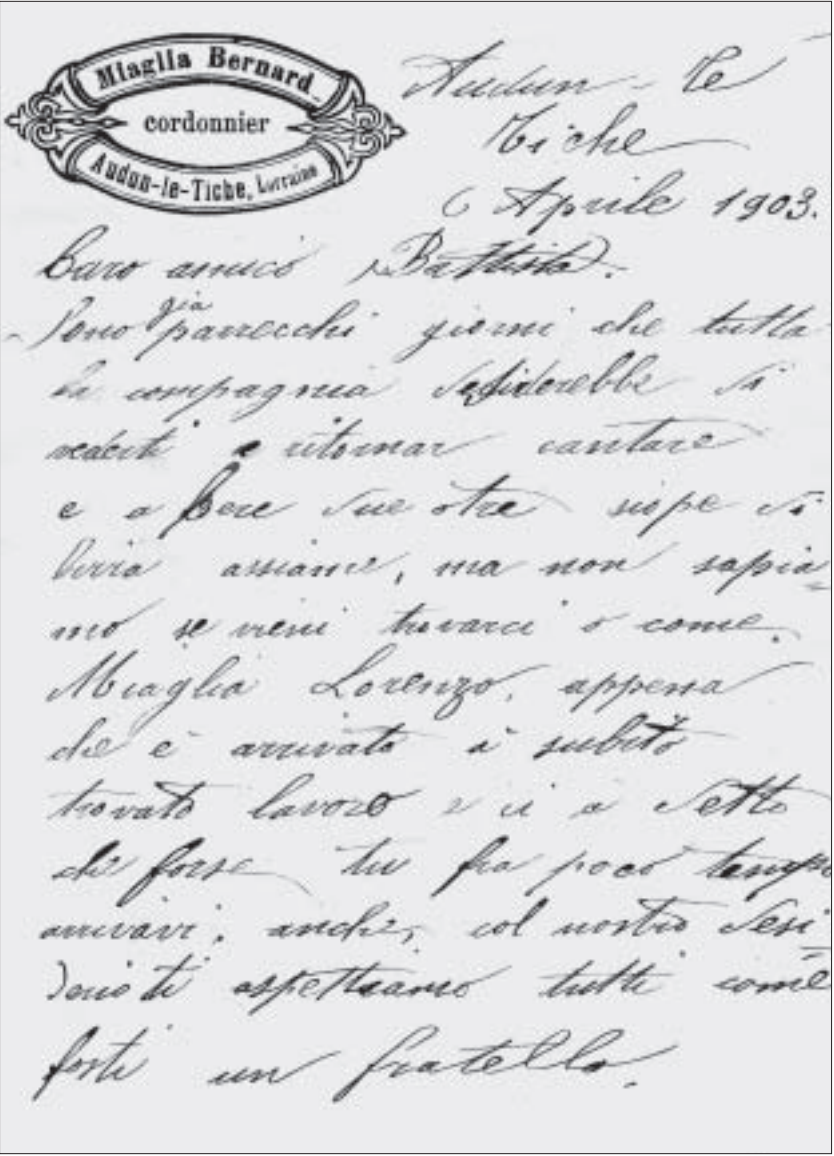 Miaglia Bernard
cordonnier
Audun-le-Tiche, Lorraine
Audun-le
Tiche
6 Aprile 1903.
Caro amico Battista.
Sono già parrecchi giorni che tutta
la compagnia desiderebbe di
vederti a ritornar cantare
e a bere due otre siope di
birra assiame, ma non sapia
mo se vieni trovarci o come.
Miaglia Lorenzo, appena
che è arrivato à subito
trovato lavoro e ci a detto
che forse tu fra poco tempo
arrivavi, anche, col nostro desi
derio ti aspettiamo tutti come
fosti un fratello.